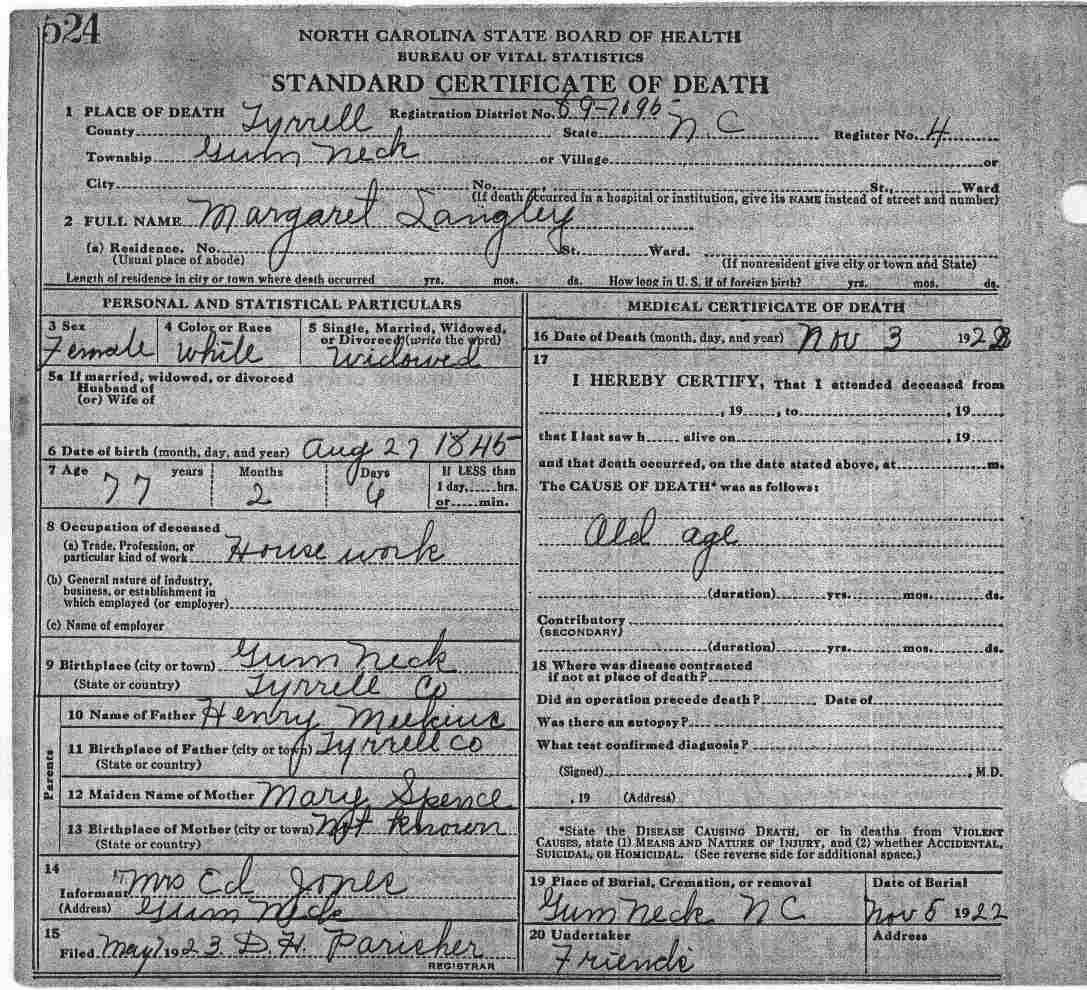 524
NORTH CAROLINA STATE BOARD OF HEALTH
BUREAU OF VITAL STATISTICS
STANDARD CERTIFICATE OF DEATH
1 PLACE OF DEATH Registration District No. 89-7095
County Tyrrell State N. C Register No. 4
Township Gum Neck or Village or
City No. St., Ward
(If death occurred in a hospital or institution, give its NAME instead of street and number)
2 FULL NAME Margaret Langley
(a) Residence. No. St. Ward.
(Usual place of abode) (If nonresident give city or town and State)
Length of residence in city or town where death occurred yrs. mos. ds. How long in U. S. if of foreign birth? yrs. mos. ds.
PERSONAL AND STATISTICAL PARTICULARS
3 Sex 4 Color or Race 5 Single, Married, Widowed,
or Divorced (write the word)
Female White Widowed
5a If married, widowed, or divorced
Husband of
(or) Wife of
6 Date of birth (month, day, and year) Aug 27 1845
7 Age years Months Days If LESS than
1 day, hrs.
77 2 6 or min.
8 Occupation of deceased
(a) Trade, Profession, or
particular kind of work House work
(b) General nature of industry,
business, or establishment in
which employed (or employer)
(c) Name of employer
9 Birthplace (city or town) Gum Neck
(State or country) Tyrrell Co
Parents
10 Name of Father Henry Meekins
11 Birthplace of Father (city or town) Tyrrell Co
(State or country)
12 Maiden Name of Mother Mary Spence
13 Birthplace of Mother (city or town) Not Known
(State or country)
14
Informant Mrs Ed Jones
(Address) Gum Neck
15
Filed May 1923 D. H. Parisher
REGISTRAR
MEDICAL CERTIFICATE OF DEATH
16 Date of Death (month, day, and year) Nov 3 1922
17
I HEREBY CERTIFY, That I attended deceased from
, 19 , to , 19
that I last saw h alive on , 19
and that death occurred, on the date stated above, at m.
The CAUSE OF DEATH* was as follows:
Old age
(duration) yrs. mos. ds.
Contributory
(SECONDARY)
(duration) yrs. mos. ds.
18 Where was disease contracted
if not at place of death?
Did an operation precede death? Date of
Was there an autopsy?
What test confirmed diagnosis?
(Signed) , M.D.
, 19 (Address)
*State the DISEASE CAUSING DEATH, or in deaths from VIOLENT
CAUSES, state (1) MEANS AND NATURE OF INJURY, and (2) whether ACCIDENTAL,
SUICIDAL, OR HOMICIDAL. (See reverse side for additional space.)
19 Place of Burial, Cremation, or removal Date of Burial
Gum Neck N C Nov 5 1922
20 Undertaker Address
Friends